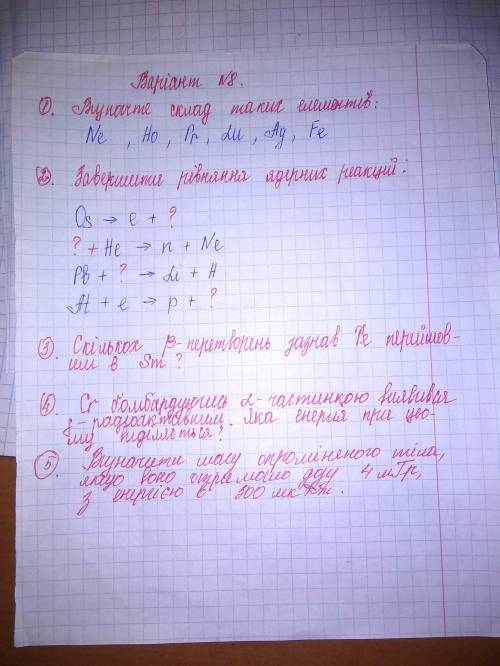 Варіант №8.
①. Визначте склад таких елементів:
Ne, Ho, Pr, Lu, Ag, Fe
②. Завершити рівняння ядерних реакцій:
Os → e + ?
? + He → n + Ne
Pb + ? → Li + H
At + e → p + ?
③. Скількох β-перетворень зазнав Te перейшов-
им в Sm?
④. Cr бомбардуючись α-частинкою виявився
γ-радіоактивним. Яка енергія при цьо-
му виділяється?
⑤. Визначити масу опроміненого тіла,
якщо воно отримало дозу 4 мГр,
з енергією в 300 мк